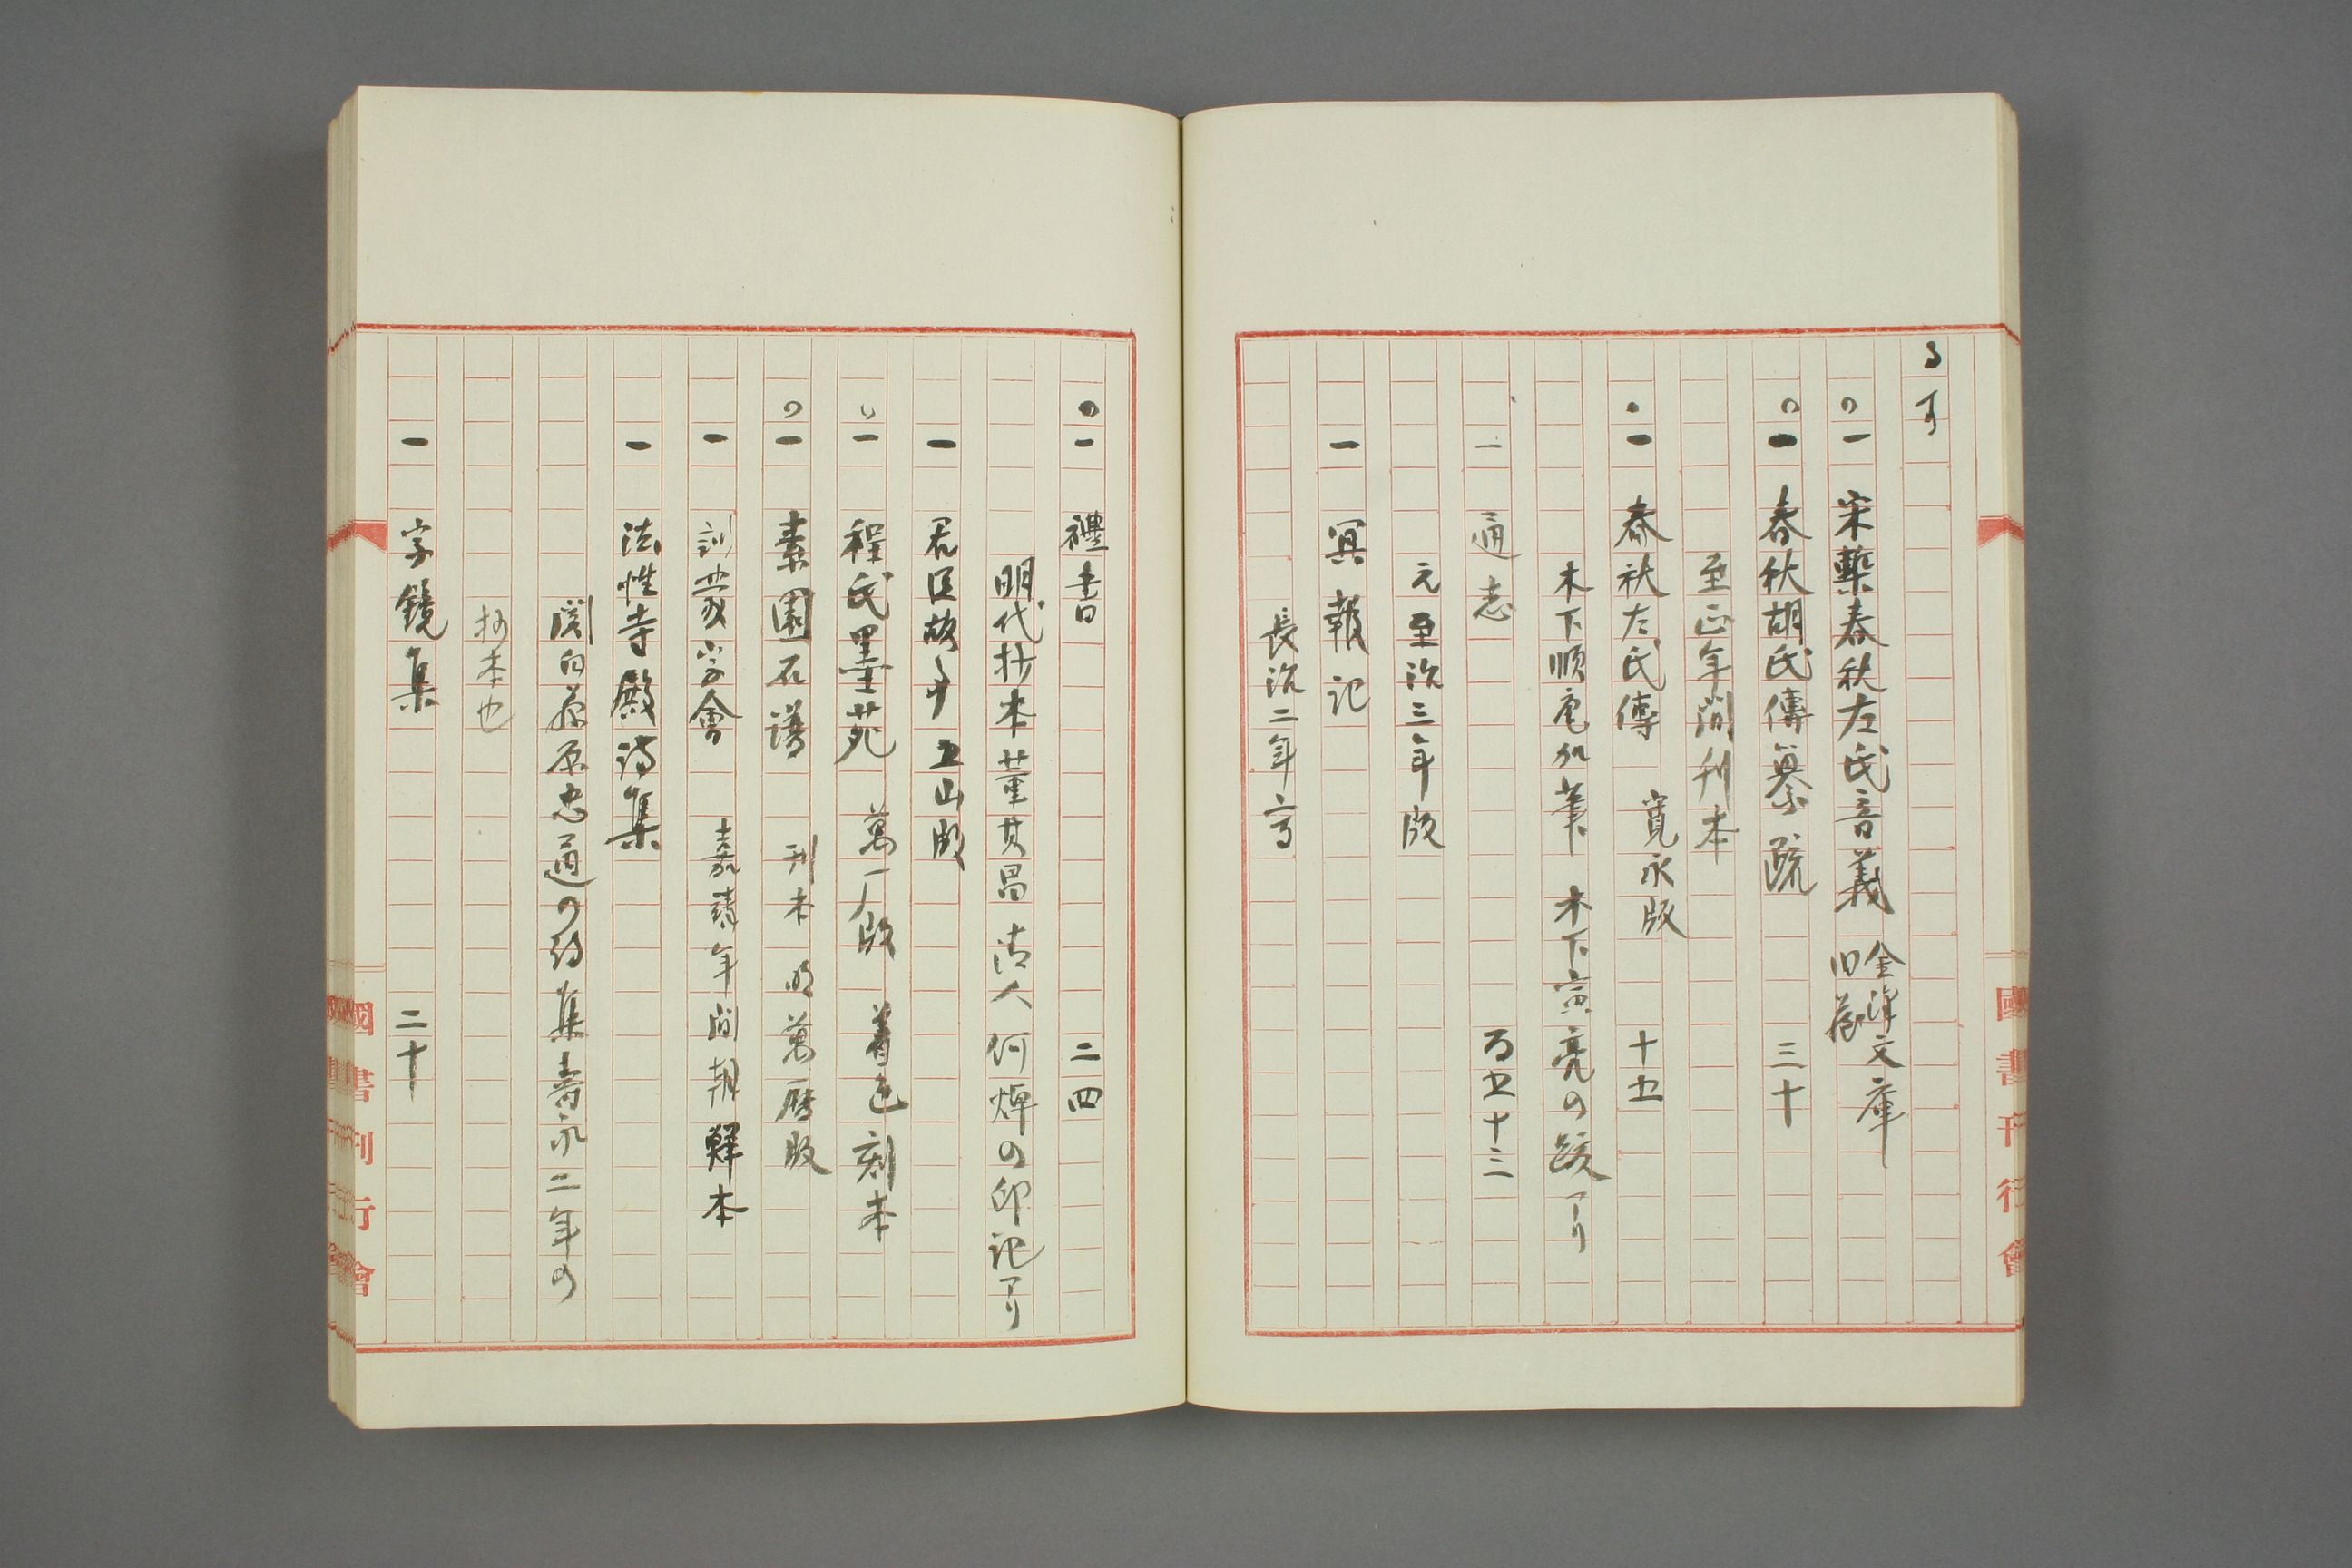 る可
〇一 宋槧春秋左氏音義 金澤文庫旧蔵
〇一 春秋胡氏傳纂疏 三十
至正年間刊本
・一 春秋左氏傳 寛永版 十五
木下順庵加筆 木下寅亮の跋アリ
一 通志 百五十三
元至治三年版
一 冥報記
長治二年写
〇一 禮書 二四
明代抄本董其昌清人何焯の印記アリ
一 君臣故事 五山版
〇一 程氏墨苑 萬厂版 着色刻本
〇一 素園石譜 刊本 明萬暦版
一 訓蒙字會 嘉靖年間朝鮮本
一 法性寺殿詩集
関白藤原忠通の詩集壽永二年の
抄本也
一 字鏡集 二十
國書刊行會
國書刊行會